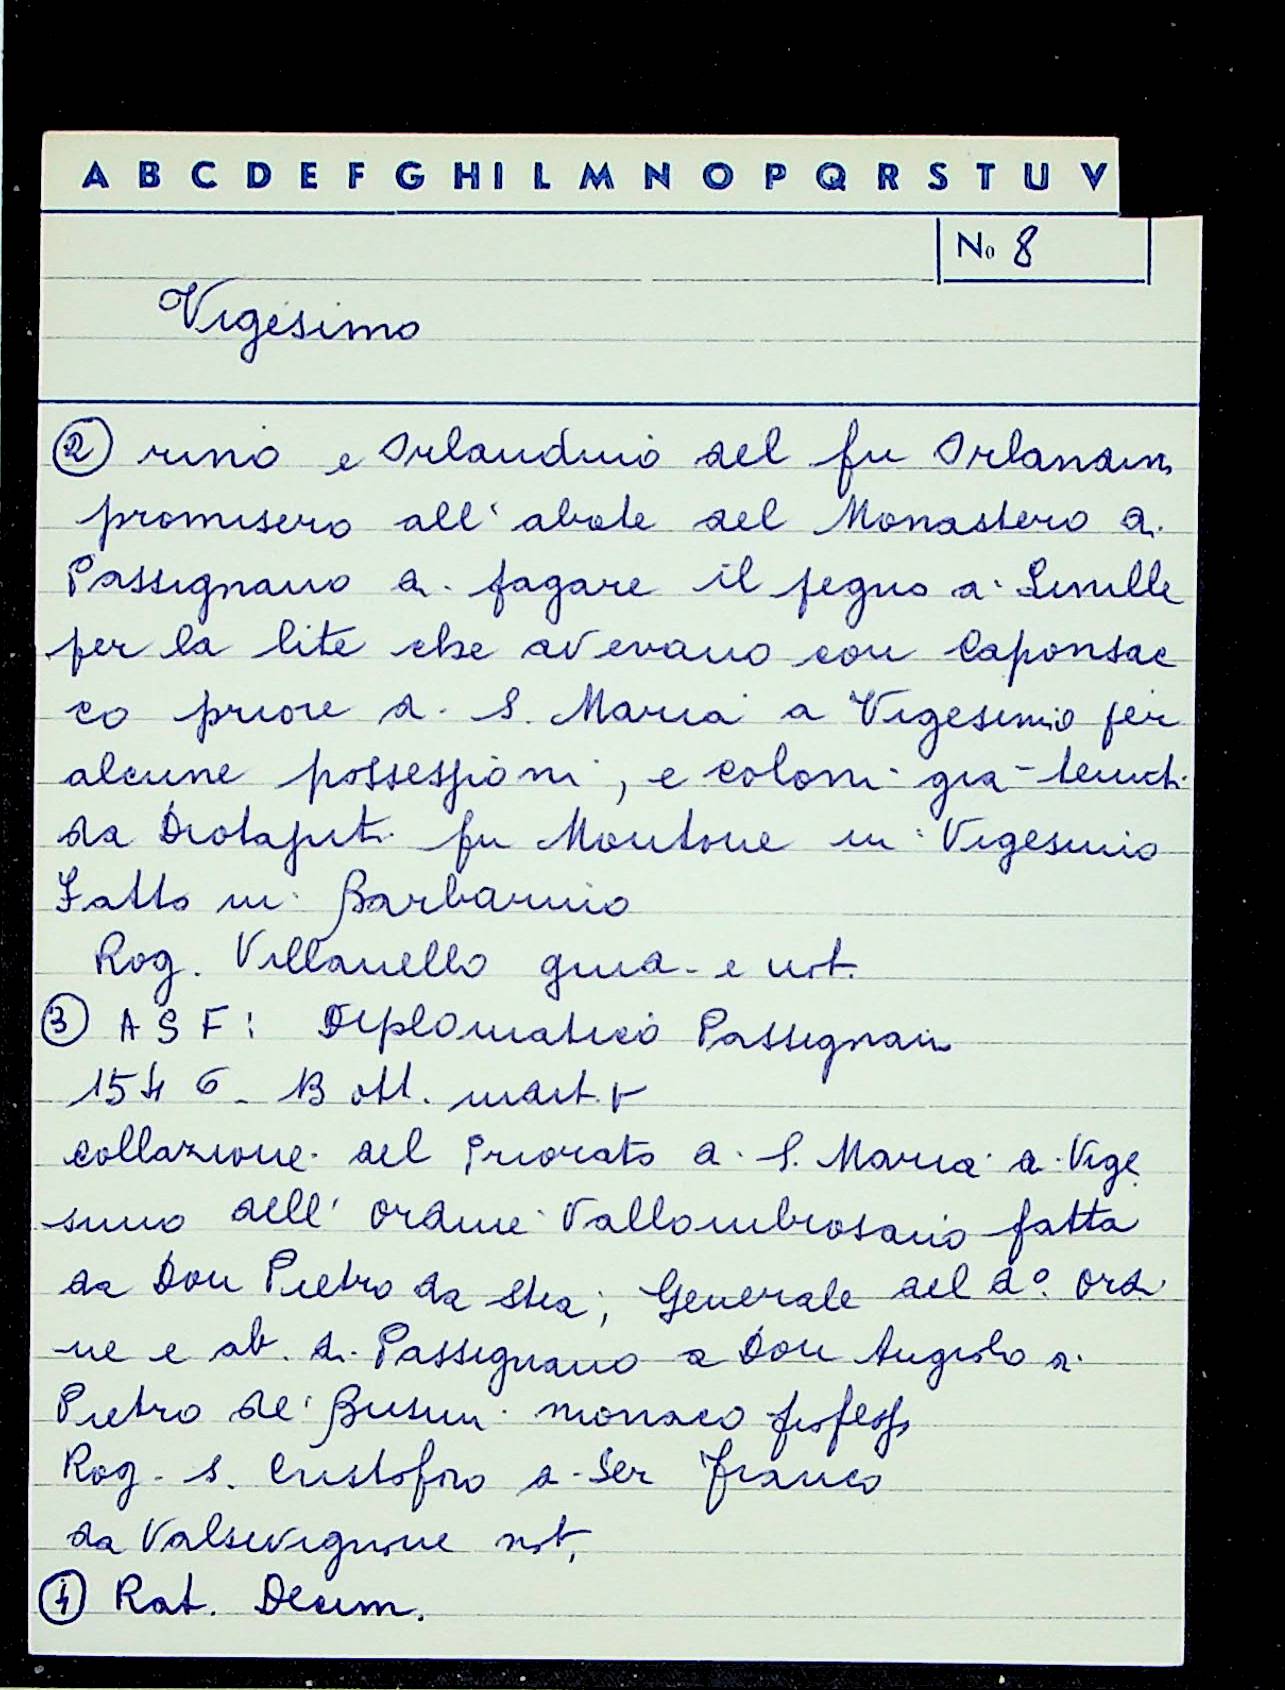 A B C D E F G H I L M N O P Q R S T U V
No 8
Vigesimo
② rino e Orlandino del fu Orlandin
promisero all' abate del Monastero di
Passignano di pagare il pegno di
per la lite che avevano con Caponsac
co priore di S. Maria a Vigesimo per
alcune possessioni, e coloni già tenuti
da Diotaiuti fu Montone in Vigesimo
Fatto in Barbarino
Rog. Villanello giud. e not.
③ A S F: Diplomatico Passignan
1546 - 13 ott. indit. V
collazione del Priorato di S. Maria a Vige
simo dell' ordine Vallombrosano fatta
da Don Pietro da, Generale del dº. ordi
ne e ab. di Passignano a Don Angiolo di
Pietro de' Busini monaco profess
Rog. s. Cristofiro di Ser Franco
da Valsavignone not.
④ Rat. Decim.